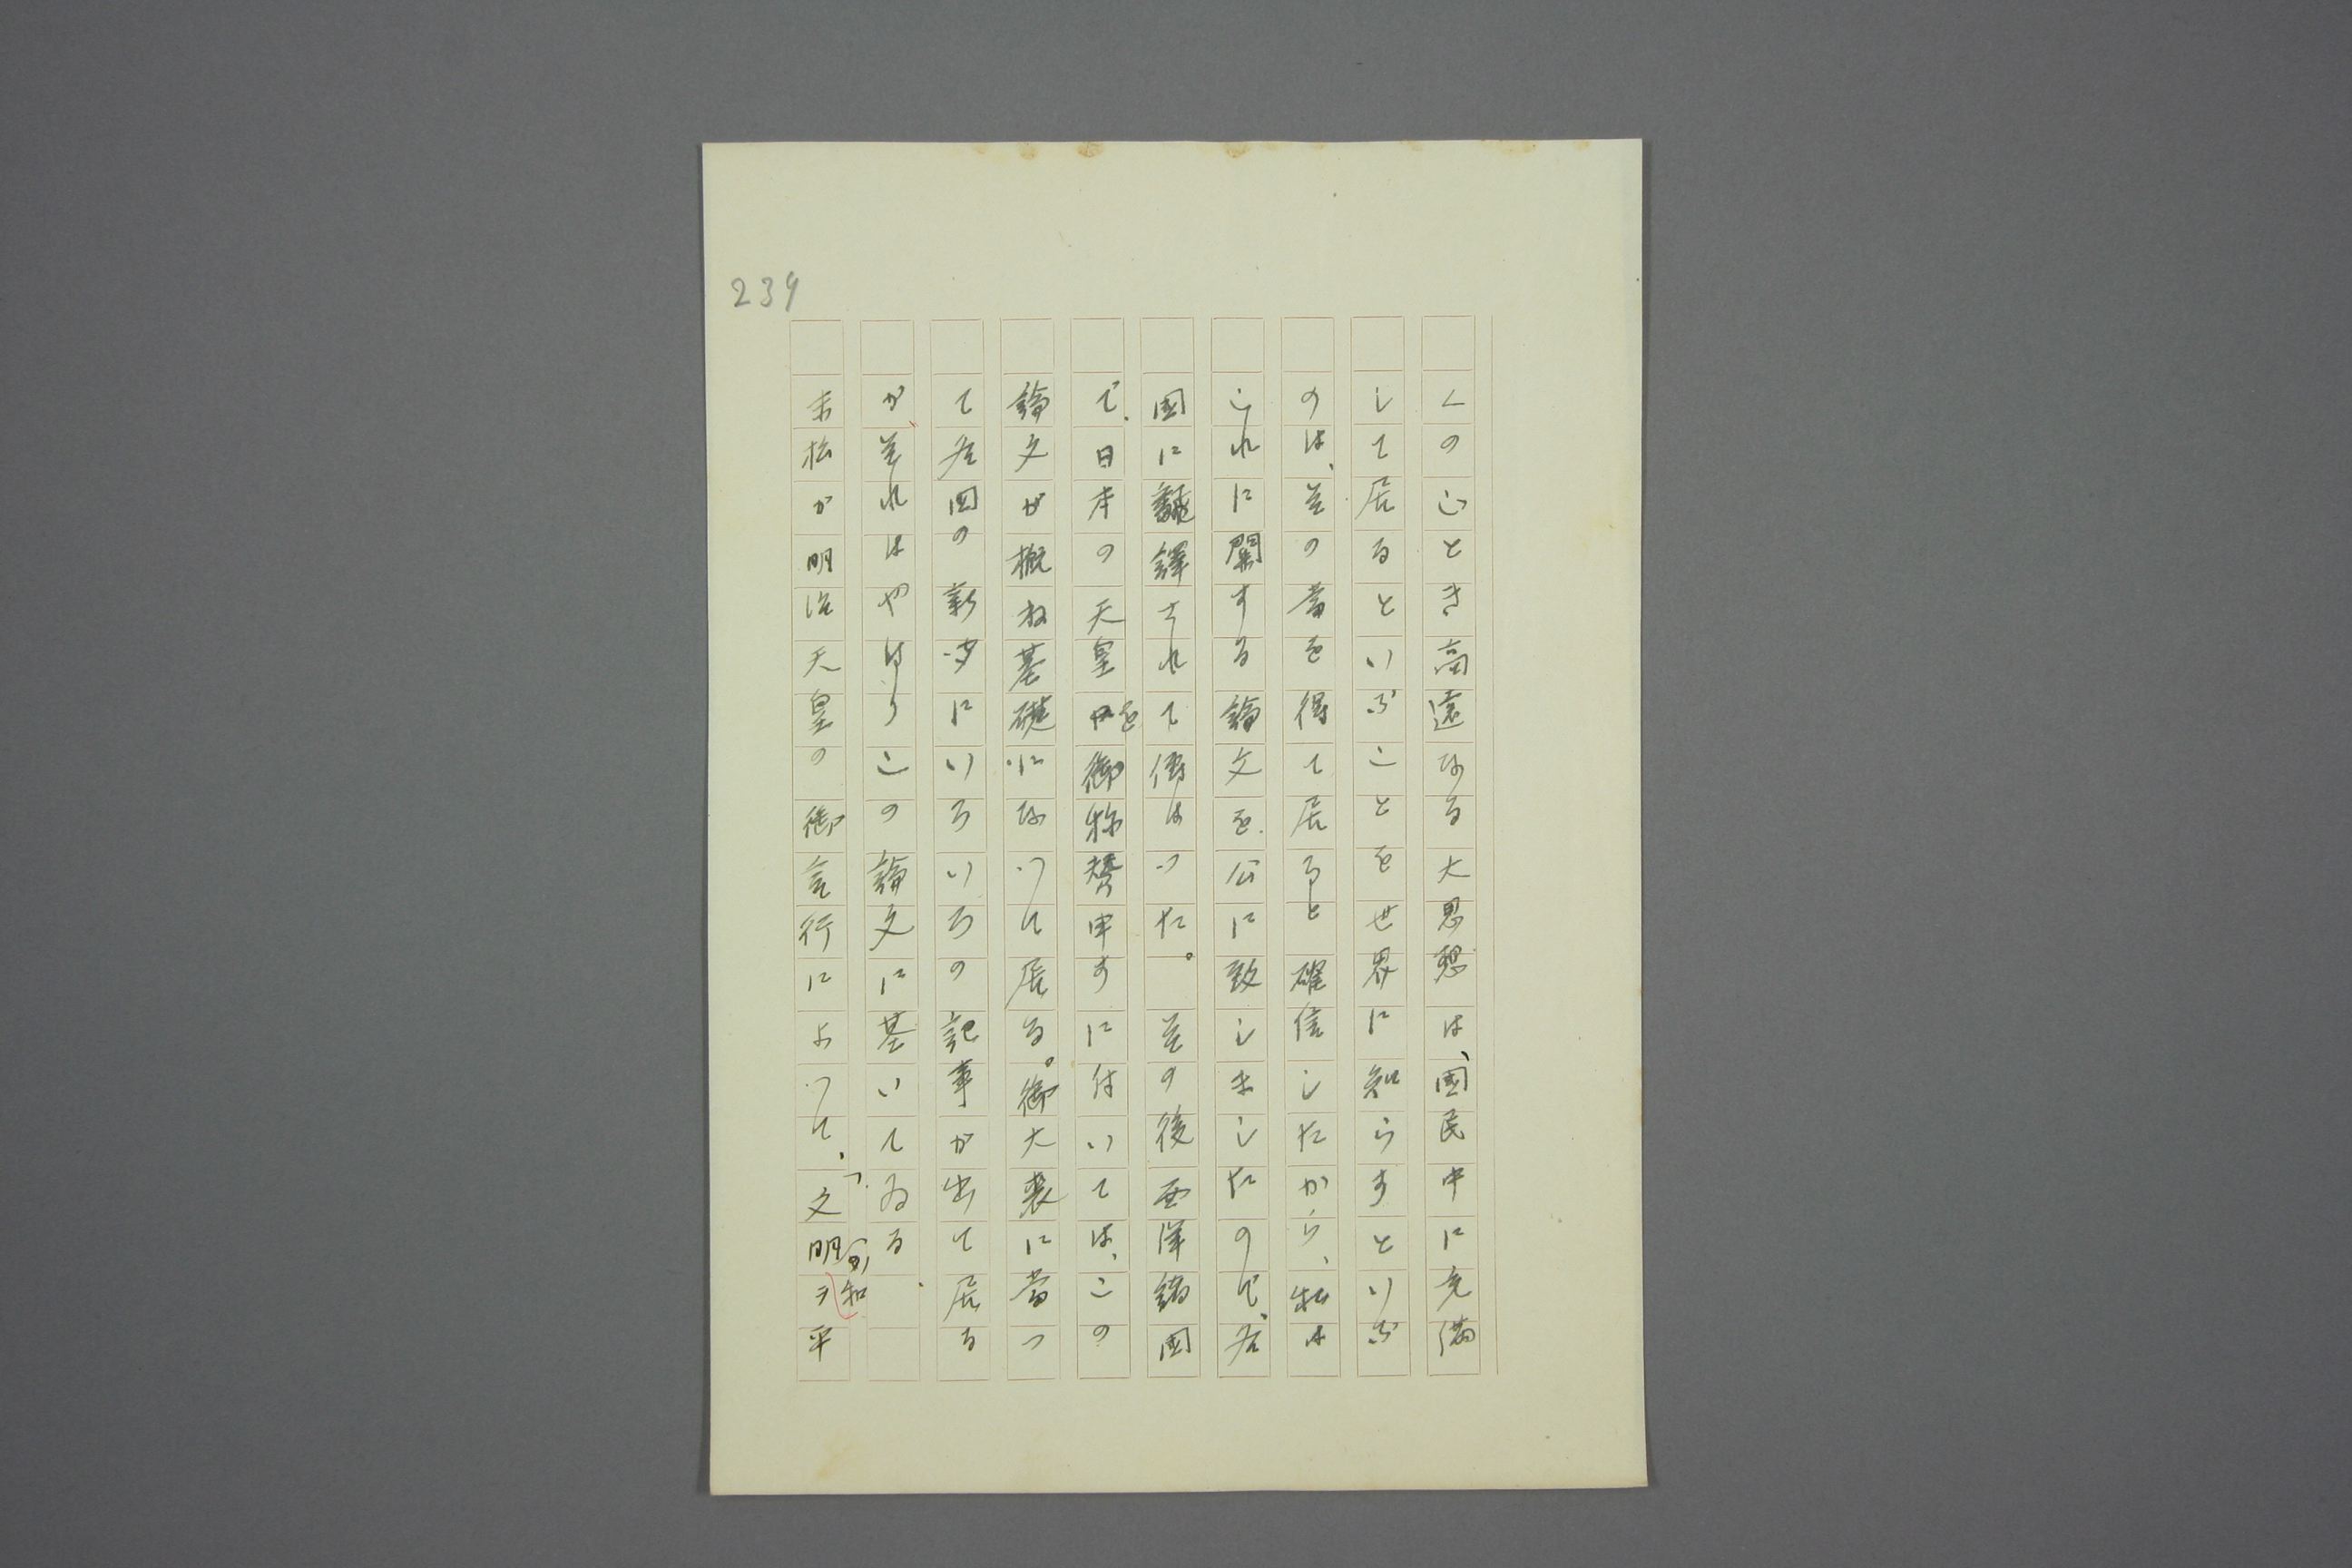 239
くの心とき高遠なる大思想は、國民中に充満
して居るといふことを世界に知らすといふ
のは、其の當を得て居ると確信したから、私は
これに關する論文を公に致しましたので、各
國に飜譯されて傳はつた。其の後西洋諸國
で、日本の天皇を御称賛申すに付いては、この
論文が概ね基礎になつて居る。御大喪に當つ
て各国の新聞にいろいろの記事が出て居る
が、其れはやはりこの論文に基いてゐる。
末松が明治天皇の御言行によつて、「文明的、和平